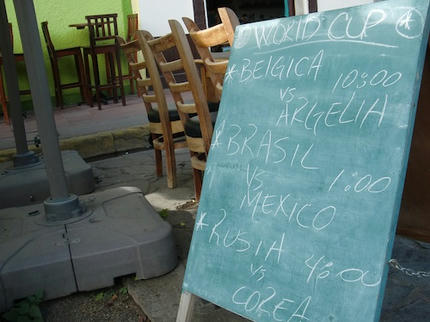 WORLD CUP
*BELGICA 10:00
VS
ARGELIA
*BRASIL
VS 1:00
MEXICO
*RUSIA
VS 4:00
COREA